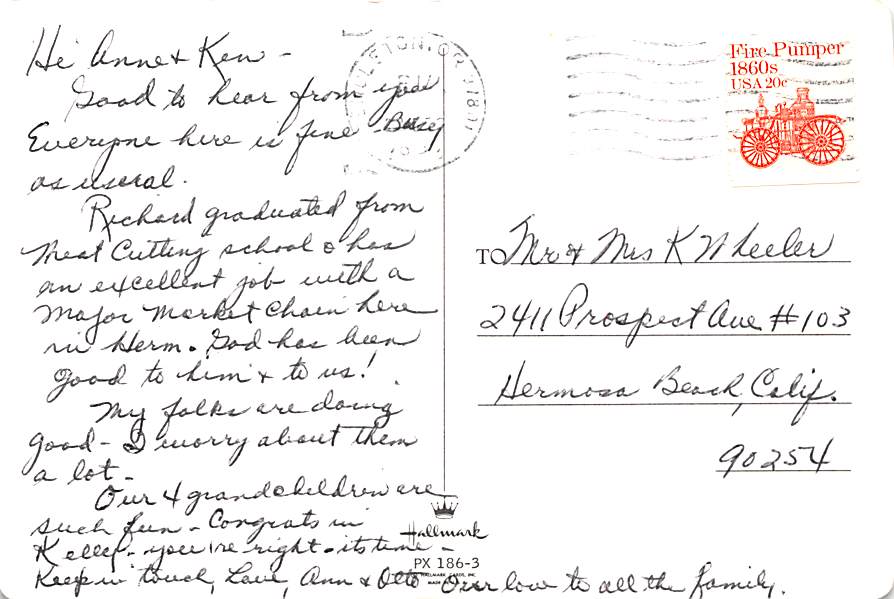 Hi Anne & Ken -
Good to hear from you
Everyone here is fine - Busy
as usual.
Richard graduated from
Meat Cutting school & has
an excellent job with a
Major Market Chain here
in Herm. God has been
good to him & to us!
My folks are doing
good - I worry about them
a lot -
Our 4 grandchildren are
such fun - Congrats in
Kelly - you're right - its time -
Keep in touch, Love, Ann & Otto Our love to all the family.
Hallmark
PX 186-3
HALLMARK CARDS, INC.
LETON, OR 97801
Fire Pumper
1860s
USA 20c
TO Mr & Mrs K Wheeler
2411 Prospect Ave #103
Hermosa Beach, Calif.
90254